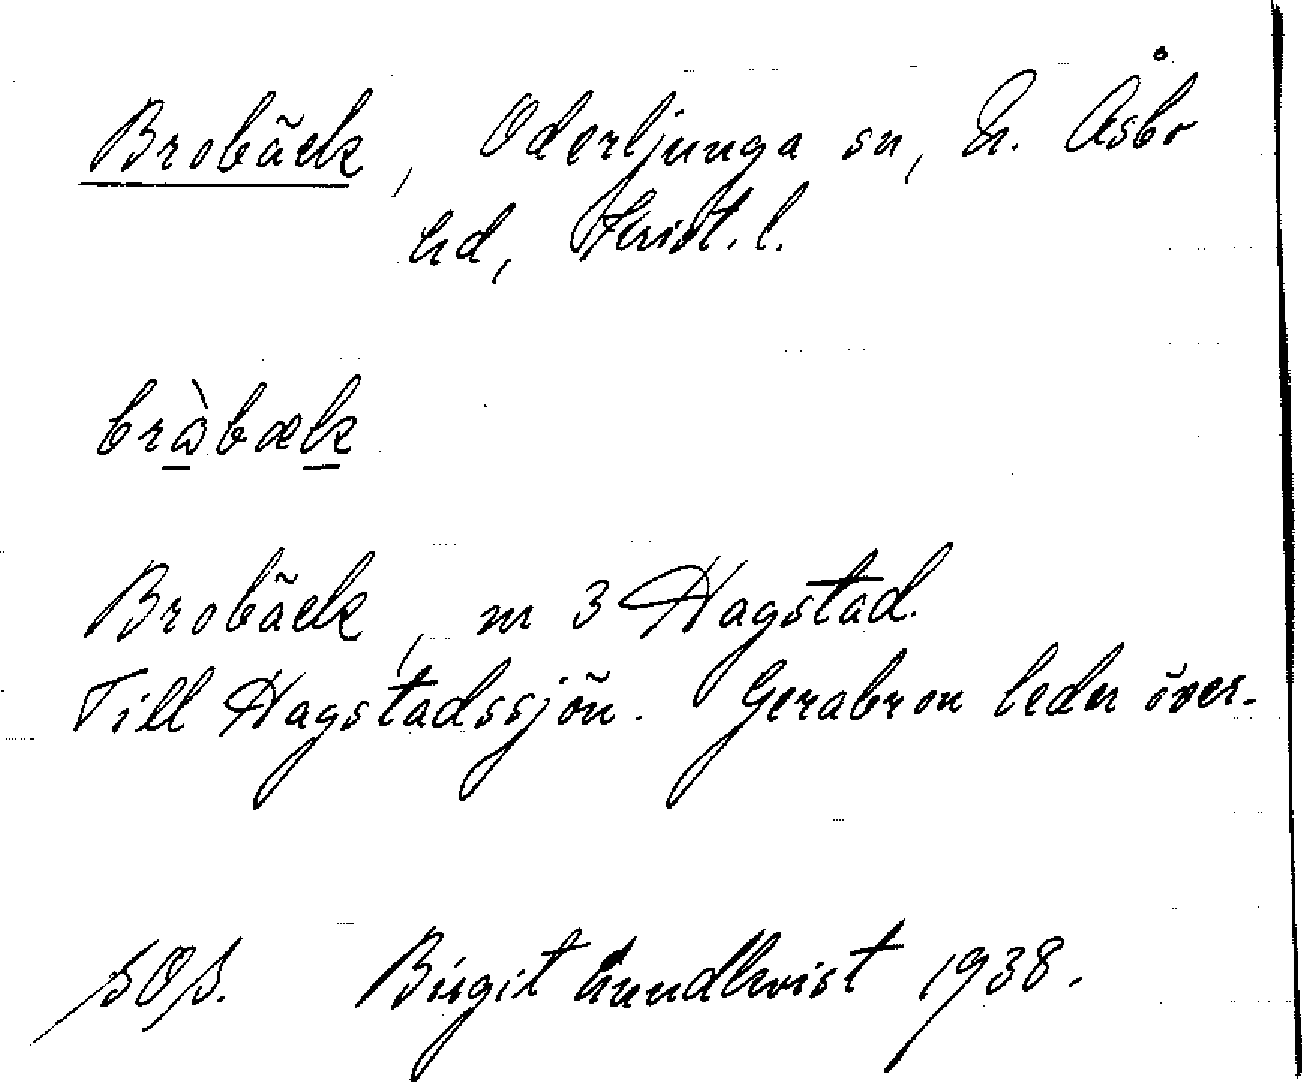 Brobäck, Oderljunga sn, N. Åsbo
hd, Krist. l.
bràbæk
Brobäck, m 3 Hagstad.
Till Hagstadssjön. Gerabron leder över.
SOS. Birgit Lundkvist 1938.